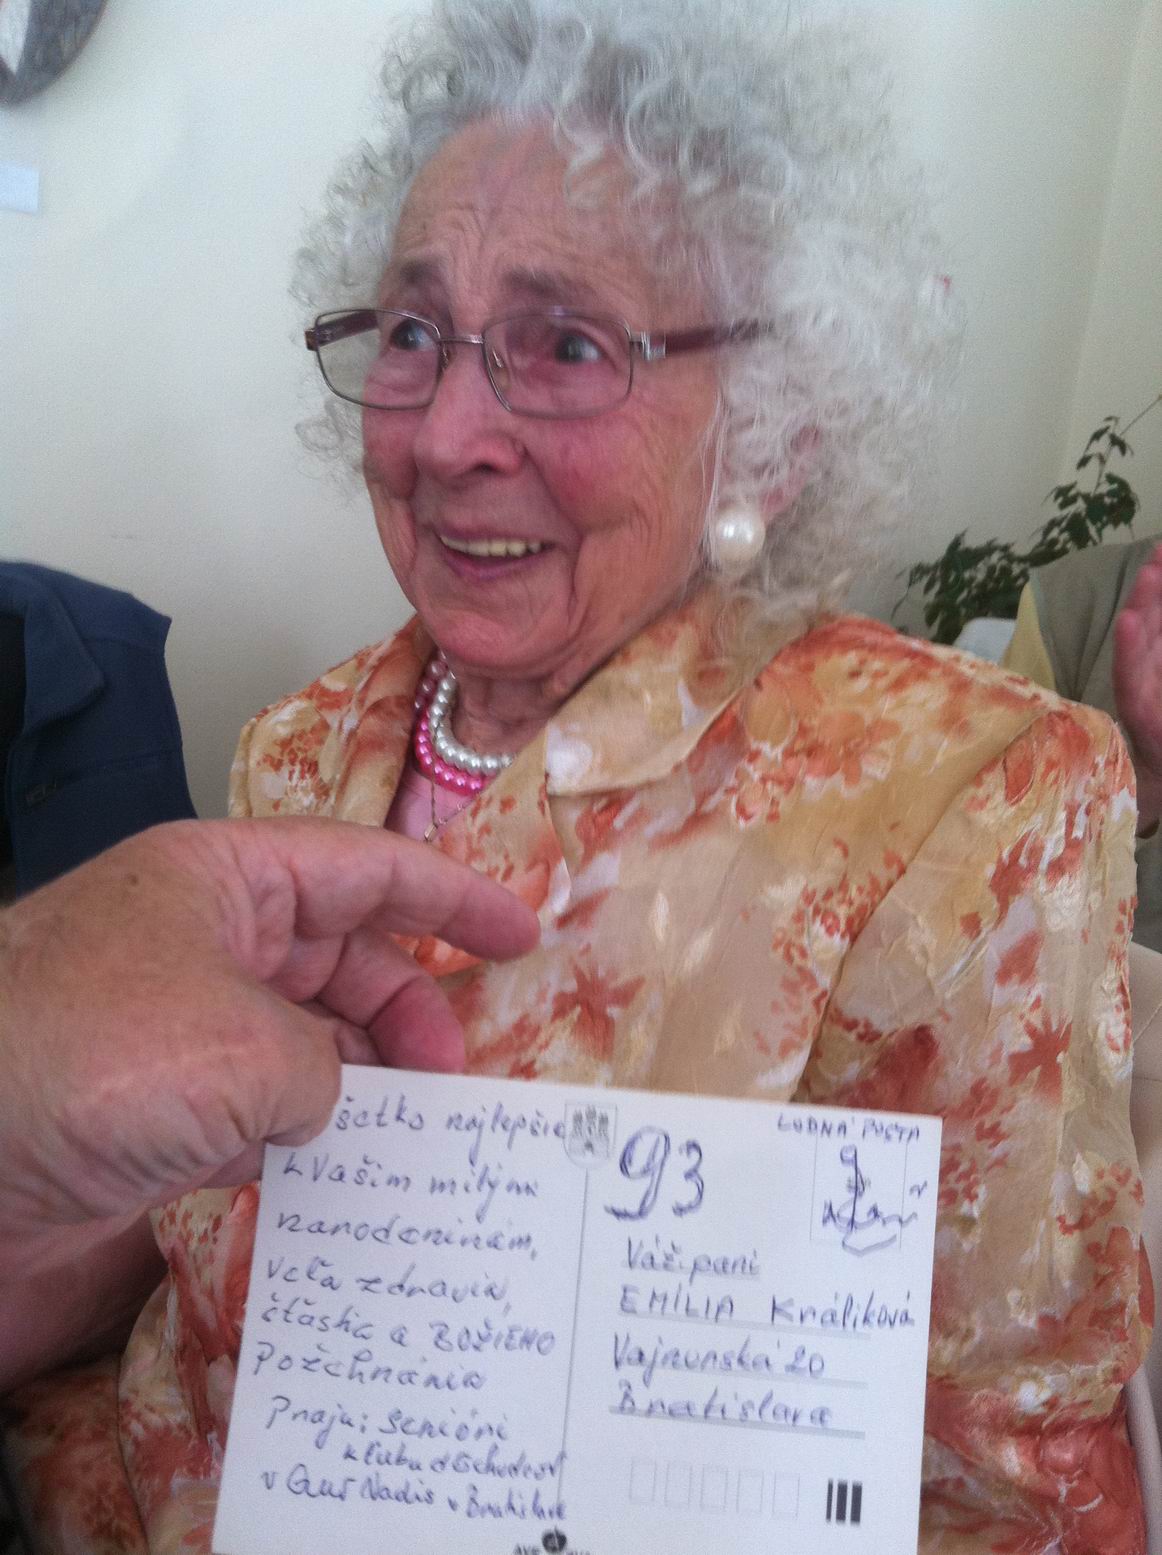 šetko najlepšie
k Vašim milým
narodeninám,
veľa zdravia,
šťastia a BOŽIEHO
Požehnania
Prajú: senióri
klubu dôchodcov
v Bratislave
93
LODNÁ POŠTA
Váž. pani
EMÍLIA Králiková
Vajnorská 20
Bratislava